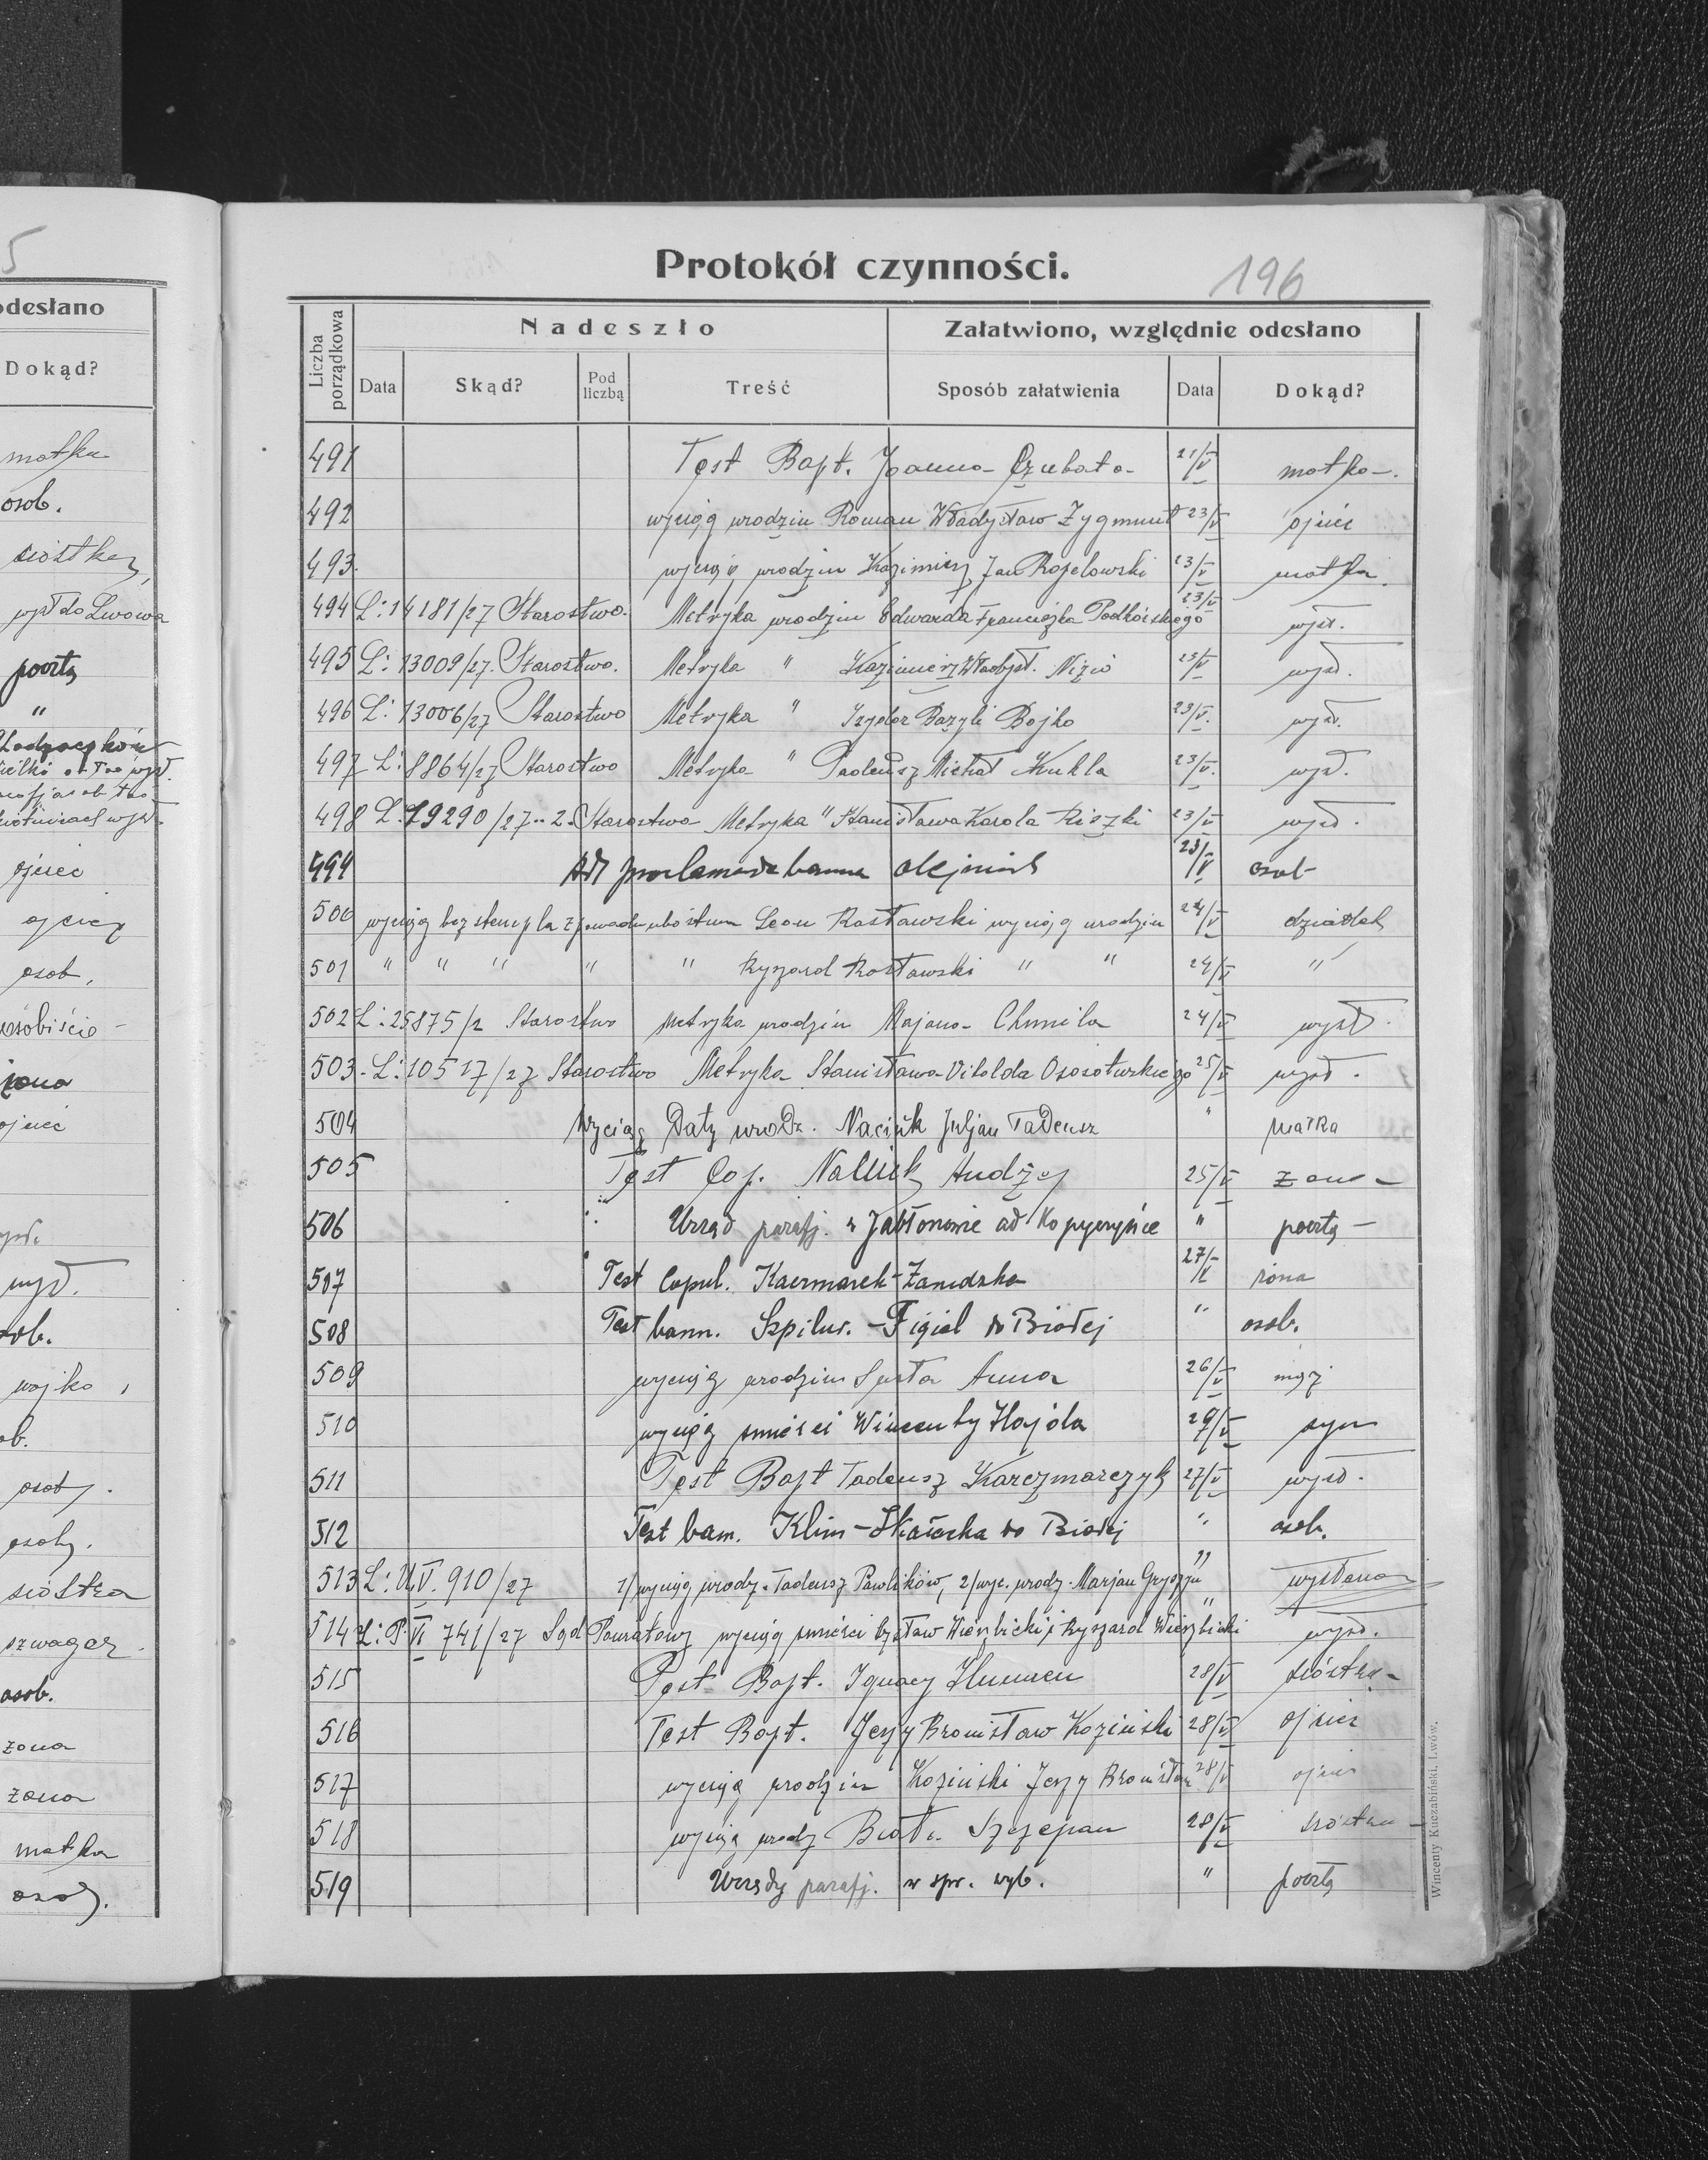 5
odesłano
Dokąd?
matka
osob.
siostka
wysł do Lwowa
pocztą
"
ojciec
ojciec
osob.
osobiście
żona
ojciec
wysł.
osob.
wojko
ob.
osoby.
osoby.
siostra
szwager.
osob.
żona
żona
matka
osob.
Protokół czynności.
196
Liczba porządkowa
Nadeszło
Załatwiono, względnie odesłano
Data
Skąd?
Pod liczbą
Treść
Sposób załatwienia
Data
Dokąd?
491 Test Bapt. Joanna Czubata 21/V matka.
492 wyciąg urodzin Roman Władysław Zygmunt 23/V ojciec
493. wyciąg urodzin Kazimierz Jan 23/V matka.
494 L: 14181/27 Starostwo. Metryka urodzin Edwarda Franciszka Podkórskiego 23/V wysł.
495 L: 13009/27. Starostwo. Metryka " Kazimierz Nizio 23/V wysł.
496 L: 13006/27 Starostwo Metryka " Izydor Bazyli Bojko 23/V. wysł.
497 L: 8864/27 Starostwo Metryka " Tadeusz Michał Kukla 23/V. wysł.
498 L: 19290/27..2. Starostwo Metryka " Stanisława Karola Kiszki 23/V wysł.
499 olejnik 23/V osob
500 wyciąg bez stempla z powodu ubóstwa Leon Rosławski wyciąg urodzin 24/V dziadek
501 " " " " " Ryszard Rosławski " " 24/V "
502 L: 25875/2 Starostwo metryka urodzin Chmiela 24/V wysł.
503. L: 10517/27 Starostwo Metryka Stanisława Vitolda 25/V wysł.
504 Wyciąg Daty urodz. Naciuk Juljan Tadeusz " matka
505 Test Cop. Andrzej 25/V żona
506 Urząd parafj. w Jabłonowie ad Kopyczyńce " pocztą
507 Test Copul. Kaczmarek- 27/V żona
508 Test bann. Szpilur. - Figiel do Białej " osob.
509 wyciąg urodzin Anna 26/V mąż
510 wyciąg śmierci Wincenty Hojda 29/V syn
511 Test Bapt Tadeusz Karczmarczyk 27/V wysł.
512 Test bann. Klim - do Białej " osob.
513 L: U.V. 910/27 1/ wyciąg urodz. Tadeusz Pawlików, 2/ wyc. urodz. Marjan " wysłano
514 L: P. VI 741/27 Sąd Powiatowy wyciąg śmierci Wierzbicki i Ryszard Wierzbicki " wysł.
515 Test Bapt. Ignacy 28/V siostka
516 Test Bapt. Jerzy Bronisław Koziński 28/V ojciec
517 wyciąg urodzin Koziński Jerzy Bronisław 28/V ojciec
518 wyciąg urodz Szczepan 28/V siostka
519 Urzędy parafj. w spr. wyb. " pocztą
Wincenty Kuczabiński, Lwów.